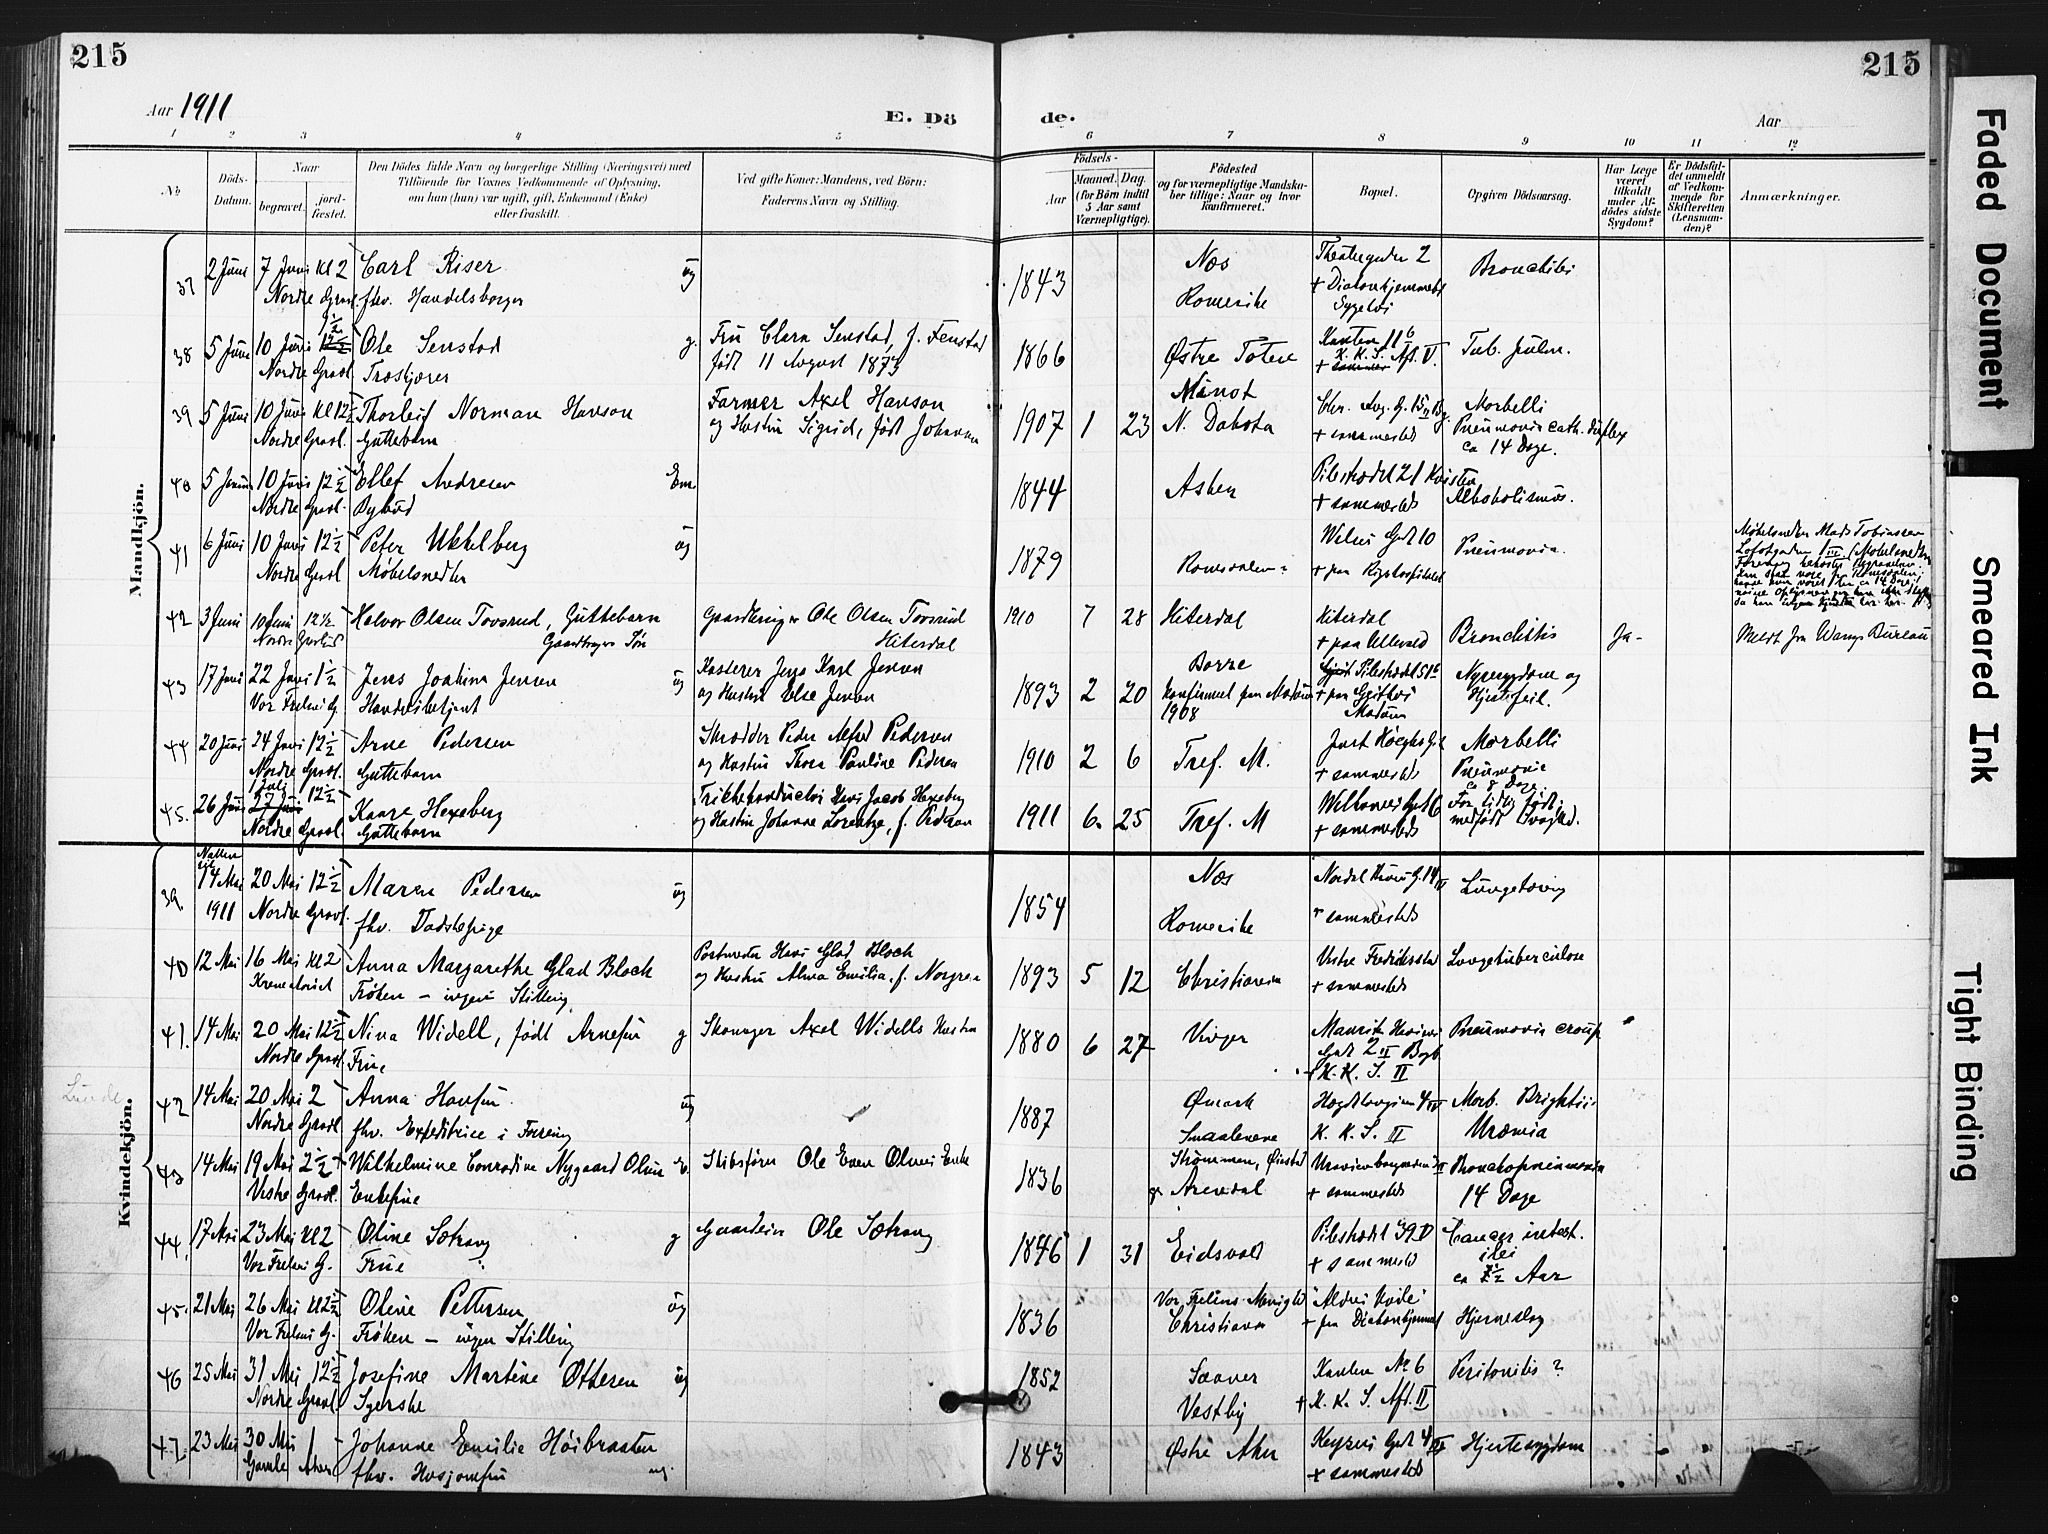 215
215
Aar 1911
E. Dö
de.
Aar
1 2 3 4 5 6 7 8 9 10 11 12
No
Döds-
Datum.
Naar
begravet.
jord-
fæstet.
Den Dödes fulde Navn og borgerlige Stilling (Næringsvei) med
Tilföiende for Voxnes Vedkommende af Oplysning,
om han (hun) var ugift, gift, Enkemand (Enke)
eller fraskilt.
Ved gifte Koner: Mandens, ved Börn:
Faderens Navn og Stilling.
Födsels-
Aar
Maaned. Dag.
(for Börn indtil
5 Aar samt
Værnepligtige).
Födested
og for værnepligtige Mandska-
ber tillige: Naar og hvor
konfirmeret.
Bopæl.
Opgiven Dödsaarsag.
Har Læge
været
tilkaldt
under Af-
dödes sidste
Sygdom?
Er Dödsfal-
det anmeldt
af Vedkom-
mende for
Skifteretten
(Lensman-
den)?
Anmærkninger.
Mandkjön.
37 2 Juni 7 Juni Kl 2 Carl Riser ug 1843 Næs Theatergaden 2 Bronchitis
Nordre Gravl. fhv. Handelsborger Romerike + Diakonhjemmets
Sygehus
38 5 Juni 10 Juni 1½ Ole Senstad g. Fru Clara Senstad, f. Fenstad 1866 Østre Toten Tub. pulm.
Nordre Gravl. født 11 August 1873 + K. K. S. Afd. V.
39 5 Juni 10 Juni Kl 12½ Thorleif Norman Hanson Farmer Axel Hanson 1907 1 23 Minot Morbelli
Nordre Gravl. Guttebarn og Hustru Sigrid, født Johansen N. Dakota + sammesteds Pneumonia cath. duplex
ca 14 Dage.
40 5 Juni 10 Juni 12½ Ellef Andresen Em. 1844 Asker Pilestrædet 21 Alkoholismus.
Nordre Gravl. Bybud + sammesteds
41 6 Juni 10 Juni 12½ Peter Ukkelberg ug 1879 Romsdalen? Welses Gade 10 Pneumonia. Møbelsnedker Mads Tobiassen
Nordre Gravl Møbelsnedker + paa Rigshospitalet
42 3 Juni 10 Juni 12½ Halvor Olsen Tovsrud, Guttebarn Gaardbruger Ole Olsen Tovsrud 1910 7 28 Hiterdal Hiterdal Bronchitis Ja- Meldt fra Wangs Bureau
Nordre Gravlund Gaardbrugers Søn Hiterdal + paa Ullevaal
43 17 Juni 22 Juni 1½ Jens Joakim Jensen ug Kasserer Jens Karl Jensen 1893 2 20 Borre Nyresygdom og
Vor Frelsers G. Handelsbetjent og Hustru Else Jensen 1908 Hjertefeil.
44 20 Juni 24 Juni 12½ Arne Pedersen Skrædder Peder Alfred Pedersen 1910 2 6 Tref. M. Just Høeghs Gd Morbelli
Nordre Gravl. Guttebarn og Hustru Thora Pauline Pedersen + sammesteds Pneumonia
ca 8 Dage.
45. 26 Juni 1 Juli 12½ Kaare Hexeberg 1911 6. 25 Tref. M For tidlig født;
Nordre Gravl. Guttebarn og Hustru Johanne Lorentze, f. Pedersen + sammesteds medfødt Svaghed.
Kvindekjön.
39. Natten til
14 Mai 20 Mai 12½ Maren Pedersen ug 1854 Næs Lungetæring
1911 Nordre Gravl. fhv. Budstepige Romerike + sammesteds
40 12 Mai 16 Mai Kl 2 Anna Margarethe Glad Block Postmester Hans Glad Block 1893 5 12 Christiania Vestre Fredrikstad Lungetuberculose
Krematoriet Frøken – ingen Stilling og Hustru Alma Emilia, f. Norgren + sammesteds
41. 14 Mai 20 Mai 12½ Nina Widell, født Arnesen g Skomager Axel Widells Hustru 1880 6 27 Vinger Pneumonia croup
Nordre Gravl. Frue Gade 2 II Bgb
+ K. K. S. II
Lunde
42 14 Mai 20 Mai 2 Anna Hansen ug 1887 Ømark Morb. Brightii
Nordre Gravl fhv. Expeditrice i Forening Smaalenene K. K. S. II Uræmia
43 14 Mai 19 Mai 2½ Wilhelmine Conradine Nygaard Olsen E. Skibsfører Ole Even Olsens Enke 1836 Strømmen, Øiestad Uranienborgveien Bronchopneumonia
Vestre Gravl. Enkefrue Arendal + sammesteds 14 Dage
44. 17 Mai 23 Mai Kl 2 Oline Sætrang g Gaardeier Ole Sætrang 1846 1 31 Eidsvold Pilestrædet 39 Cancer intest.
Vor Frelsers G. Frue + sammesteds ilei
ca ½ Aar
45. 21 Mai 26 Mai Kl 2½ Oline Pettersen ug 1836 Vor Frelsers Menighed Aldres Hvile Hjerneslag
Vor Frelsers G. Frøken – ingen Stilling Christiania + paa Diakonhjemmet
46 25 Mai 31 Mai 12½ Josefine Martine Ottesen ug 1852 Saaner Peritonitis?
Nordre Gravl. Syerske Vestby + K. K. S. Afd. II
47. 23 Mai 30 Mai 1 Johanne Emilie Høibraaten 1843 Østre Aker Keysers Gade 4 Hjertesygdom
Gamle Aker fhv. Husjomfru ug. + sammesteds
Faded Document
Smeared Ink
Tight Binding